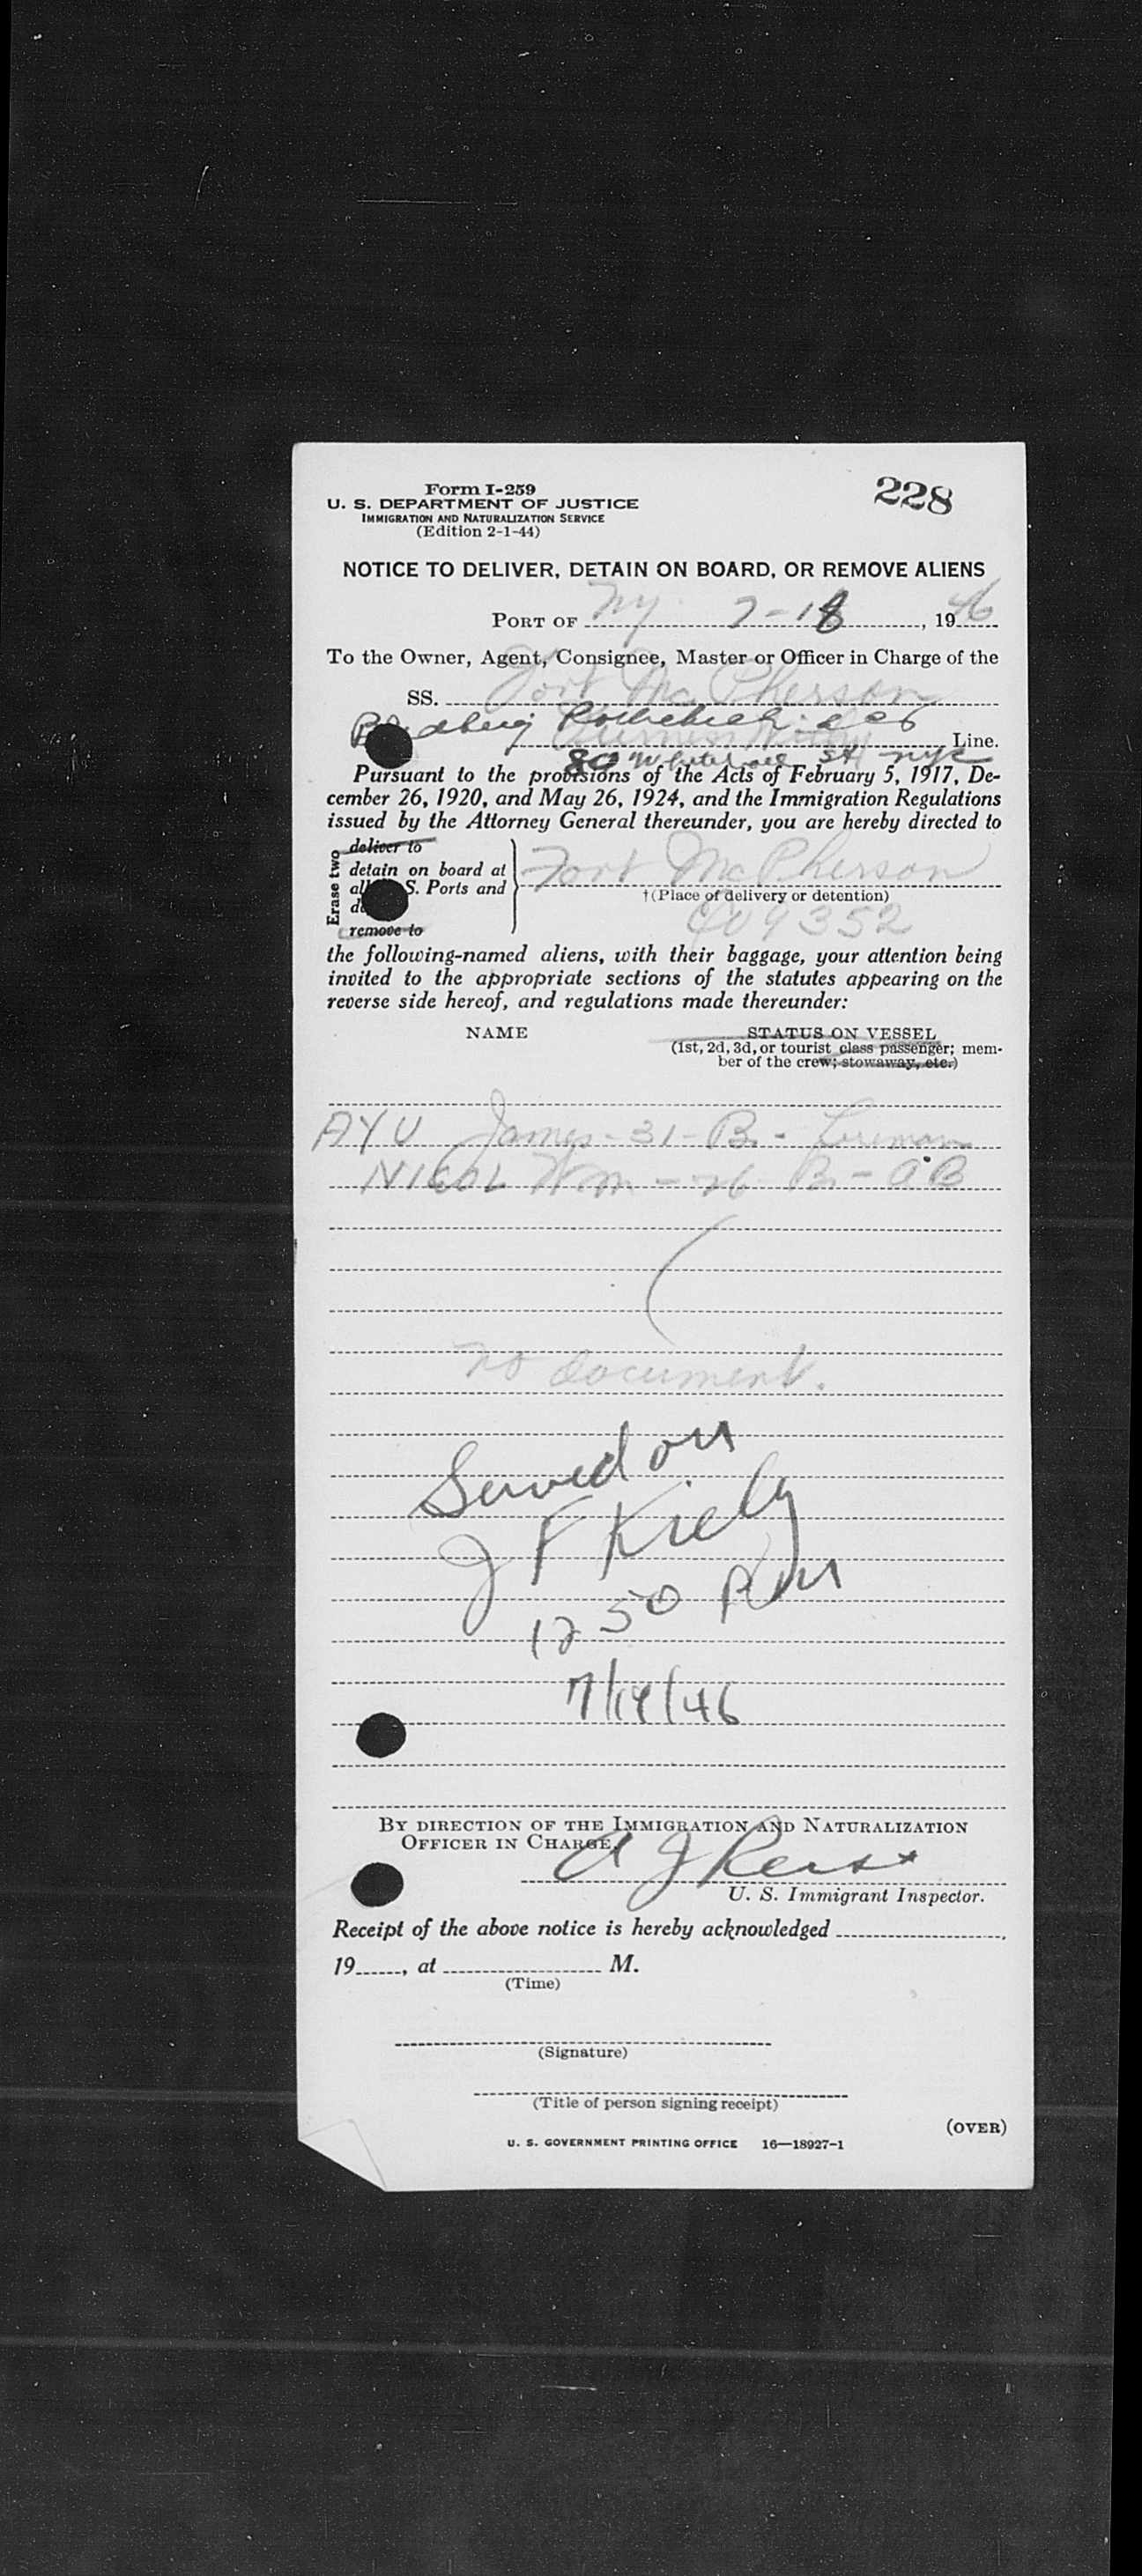 Form I-259
228
U. S. DEPARTMENT OF JUSTICE
IMMIGRATION AND NATURALIZATION SERVICE
(Edition 2-1-44)
NOTICE TO DELIVER, DETAIN ON BOARD, OR REMOVE ALIENS
PORT OF NY 7-18, 1946
To the Owner, Agent, Consignee, Master or Officer in Charge of the
SS. Fort McPherson
Line.
80 Whitehall St NYC
Pursuant to the provisions of the Acts of February 5, 1917, De-
cember 26, 1920, and May 26, 1924, and the Immigration Regulations
issued by the Attorney General thereunder, you are hereby directed to
Erase two
deliver to
detain on board at
S. Ports and
remove to
Fort McPherson
†(Place of delivery or detention)
the following-named aliens, with their baggage, your attention being
invited to the appropriate sections of the statutes appearing on the
reverse side hereof, and regulations made thereunder:
NAME STATUS ON VESSEL
(1st, 2d, 3d, or tourist class passenger; mem-
ber of the crew; stowaway, etc.)
AYU James - 31 - B. - Fireman
NICOL Wm - 26 B - AB
No document.
Served on
J F Kiely
12 50 PM
7/19/46
BY DIRECTION OF THE IMMIGRATION AND NATURALIZATION
OFFICER IN CHARGE,
A J
U. S. Immigrant Inspector.
Receipt of the above notice is hereby acknowledged
19, at M.
(Time)
(Signature)
(Title of person signing receipt)
(OVER)
U. S. GOVERNMENT PRINTING OFFICE 16—18927-1